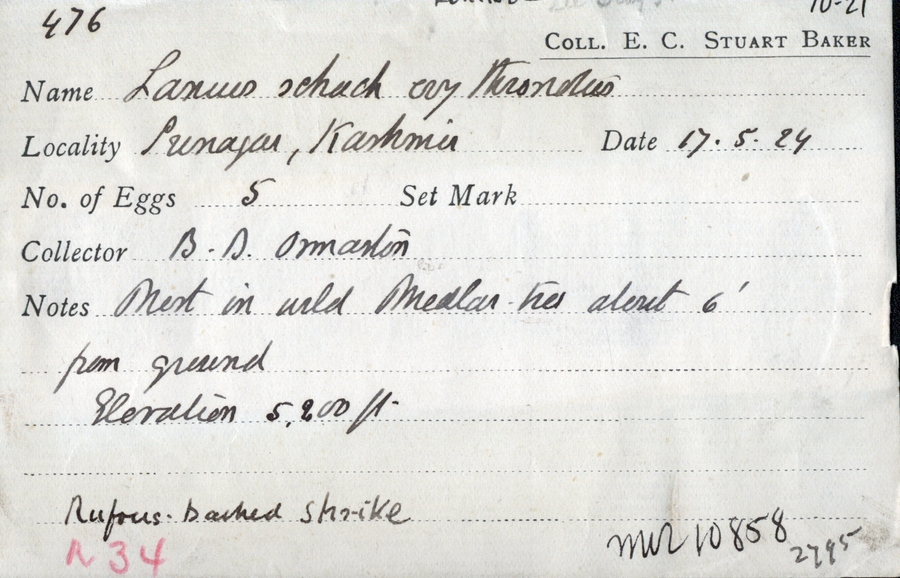 10-21
476
COLL. E. C. STUART BAKER
Name Lanius schach erythronotus
Locality Srinagar, Kashmir Date 17.5.24
No. of Eggs 5 Set Mark
Collector B. B. Osmaston
Notes Nest in wild Medlar tree about 6'
from ground
Elevation 5,200 ft.
Rufous-backed Shrike
R 34
10858
2795